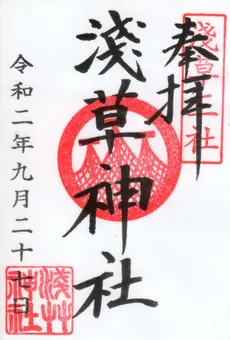 奉拝
淺草三社
淺草神社
令和二年九月二十七日
淺草
神社